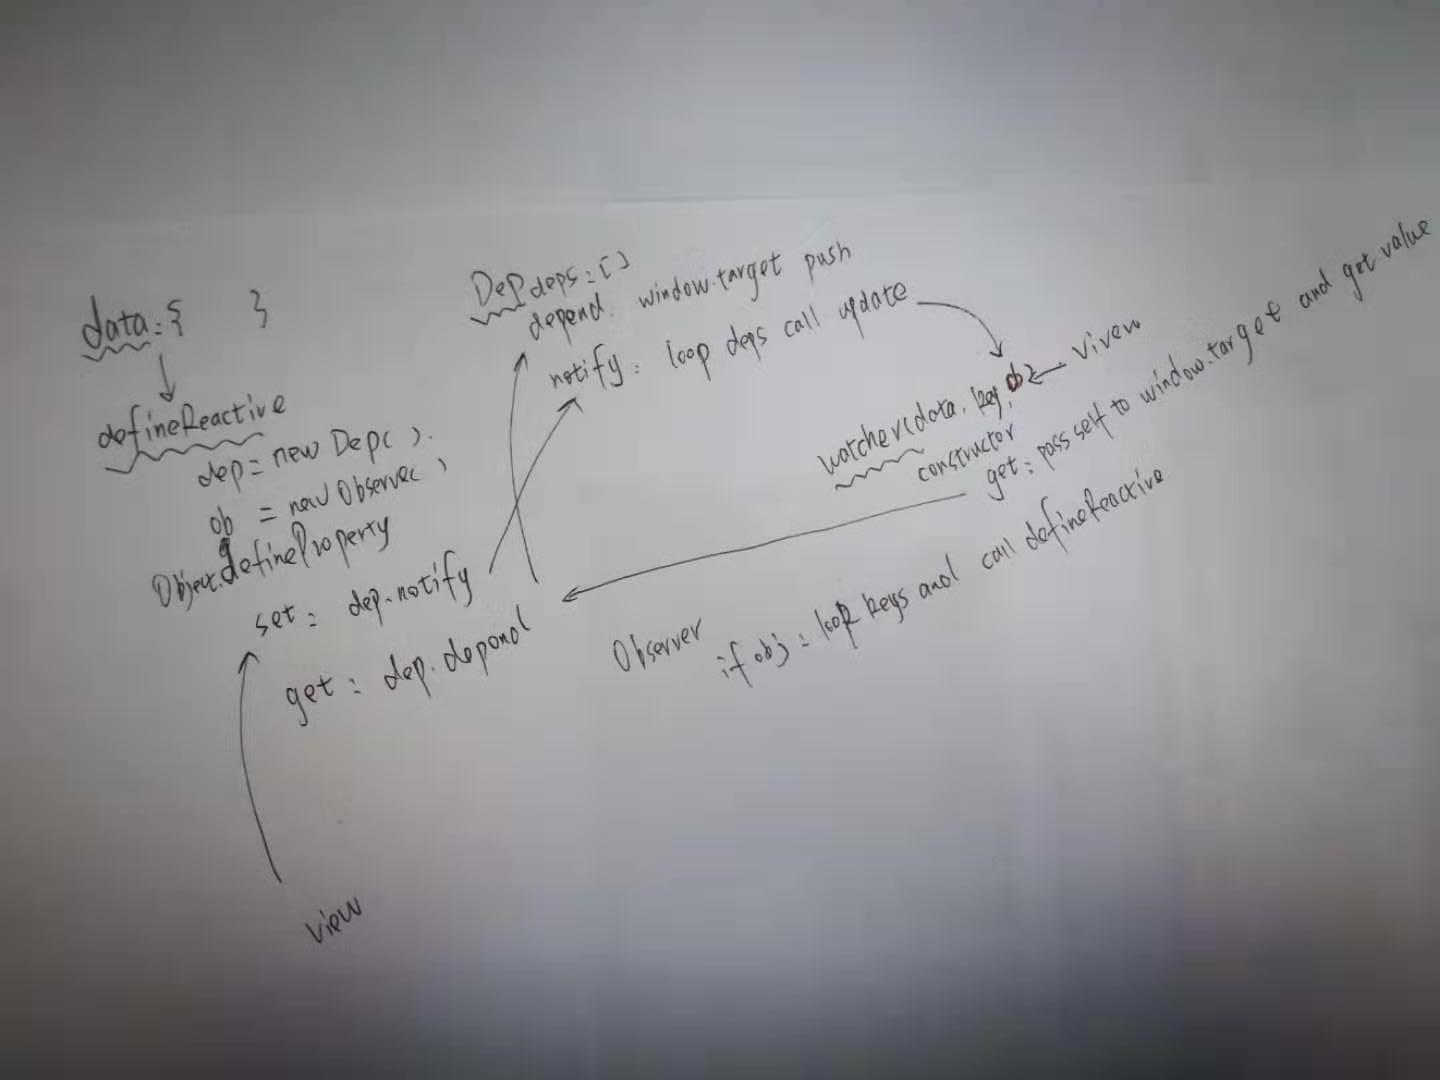 data: { }
defineReactive
dep = new Dep( ).
ob = new Observer )
Object.defineProperty
set: dep.notify
get: dep.depend
view
Dep deps: []
depend: window.target push
notify: loop deps call update
watcher(data, key,
viven
constructor
get: pass self to window.target and get value
Observer
if obj: loop keys and call defineReactive